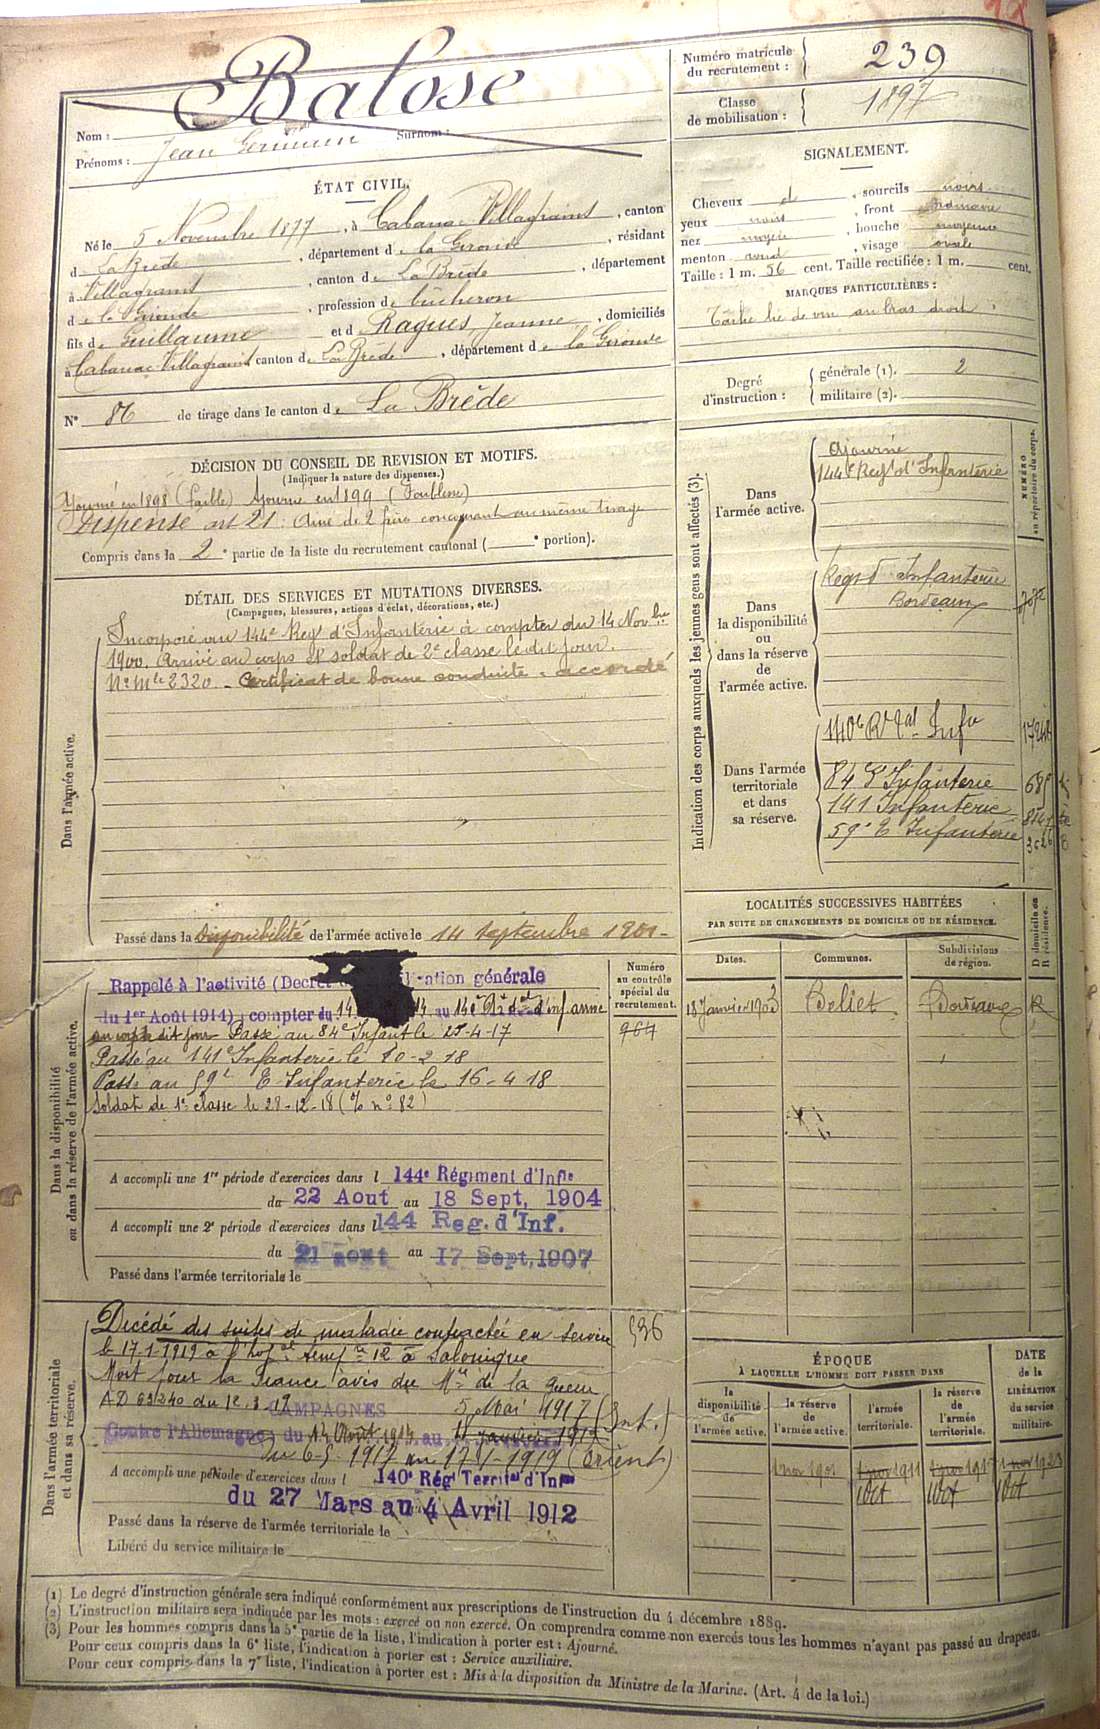 Nom : Balose Surnom :
Prénoms : Jean Germain
Numéro matricule du recrutement : 239
Classe de mobilisation : 1897
ÉTAT CIVIL.
Né le 5 Novembre 1877, à Cabanac-Villagrains, canton
d La Brède, département de la Gironde, résidant
à Villagrains, canton de La Brède, département
de la Gironde, profession de bûcheron
fils de Guillaume et d Ragues, Jeanne, domiciliés
à Cabanac-Villagrains canton de La Brède, département de la Gironde
N° 86 de tirage dans le canton de La Brède
SIGNALEMENT.
Cheveux d, sourcils noirs
yeux noirs, front ordinaire
nez moyen, bouche moyenne
menton rond, visage ovale
Taille : 1 m. 56 cent. Taille rectifiée : 1 m. cent.
MARQUES PARTICULIÈRES :
Tâche lie de vin au bras droit.
Degré d'instruction : générale (1). 2
militaire (2).
DÉCISION DU CONSEIL DE REVISION ET MOTIFS.
(Indiquer la nature des dispenses.)
Ajourné en 1898 (faible) Ajourné en 1899 (Faiblesse)
Dispensé art 21 : Ainé de 2 frères concourant au même tirage
Compris dans la 2e partie de la liste du recrutement cantonal ( e portion).
DÉTAIL DES SERVICES ET MUTATIONS DIVERSES.
(Campagnes, blessures, actions d'éclat, décorations, etc.)
Dans l'armée active.
Incorporé au 144e Regt d'Infanterie à compter du 14 Novbre
1900. Arrivé au corps et soldat de 2e classe le dit jour.
No mle 2320 - Certificat de bonne conduite - accordé
Passé dans la Disponibilité de l'armée active le 14 Septembre 1901-
Indication des corps auxquels les jeunes gens sont affectés (3).
NUMÉRO au répertoire du corps.
Dans l'armée active.
Ajourné
144e Regt d'Infanterie
Dans la disponibilité ou dans la réserve de l'armée active.
Regt d'Infanterie
Bordeaux
Dans l'armée territoriale et dans sa réserve.
140e Rt tal Infie
84 E Infanterie
141 Infanterie
59e E Infanterie
LOCALITÉS SUCCESSIVES HABITÉES
PAR SUITE DE CHANGEMENTS DE DOMICILE OU DE RÉSIDENCE.
Dates. Communes. Subdivisions de région. D domicile ou R résidence.
18 Janvier 1903 Beliet Bordeaux R
Dans la disponibilité ou dans la réserve de l'armée active.
Numéro au contrôle spécial du recrutement.
964
Rappelé à l'activité (Decret ation générale
du 1er Août 1914) à compter du 14 14 au 140e Rt d'infanrie
au corps dit jour Passé au 84e Infant le 25-4-17
Passé au 141e Infanterie le 10-2-18
Passé au 59e E Infanterie le 16-4 18
Soldat de 1e classe le 28-12-18 (% no 82)
A accompli une 1re période d'exercices dans l 144e Régiment d'Infie
du 22 Aout au 18 Sept, 1904
A accompli une 2e période d'exercices dans l 144 Reg. d'Inf.
du 21 aout au 17 Sept, 1907
Passé dans l'armée territoriale le
Dans l'armée territoriale et dans sa réserve.
536
Décédé des suites de maladie contractée en service
le 17-1-1919 à l'hopal tempre 12 à Salonique
Mort pour la France avis du Mre de la guerre
AD 63240 du 12.3.19
CAMPAGNES 5 Mai 1917 (Int.)
Contre l'Allemagne : du 14 Août 1914 au 17 janvier 1919
Du 6-5-1917 au 17-1-1919 (Orient)
A accompli une période d'exercices dans l 140e Régt Territal d'Infie
du 27 Mars au 4 Avril 1912
Passé dans la réserve de l'armée territoriale le
Libéré du service militaire le
ÉPOQUE
À LAQUELLE L'HOMME DOIT PASSER DANS
la disponibilité de l'armée active. la réserve de l'armée active. l'armée territoriale. la réserve de l'armée territoriale.
DATE de la LIBÉRATION du service militaire.
1 nov 1901 1 nov 1911 1 nov 1917 1 nov 1923
1 Oct 1 Oct 1 Oct
(1) Le degré d'instruction générale sera indiqué conformément aux prescriptions de l'instruction du 4 décembre 1889.
(2) L'instruction militaire sera indiquée par les mots : exercé ou non exercé. On comprendra comme non exercés tous les hommes n'ayant pas passé au drapeau.
(3) Pour les hommes compris dans la 5e partie de la liste, l'indication à porter est : Ajourné.
Pour ceux compris dans la 6e liste, l'indication à porter est : Service auxiliaire.
Pour ceux compris dans la 7e liste, l'indication à porter est : Mis à la disposition du Ministre de la Marine. (Art. 4 de la loi.)